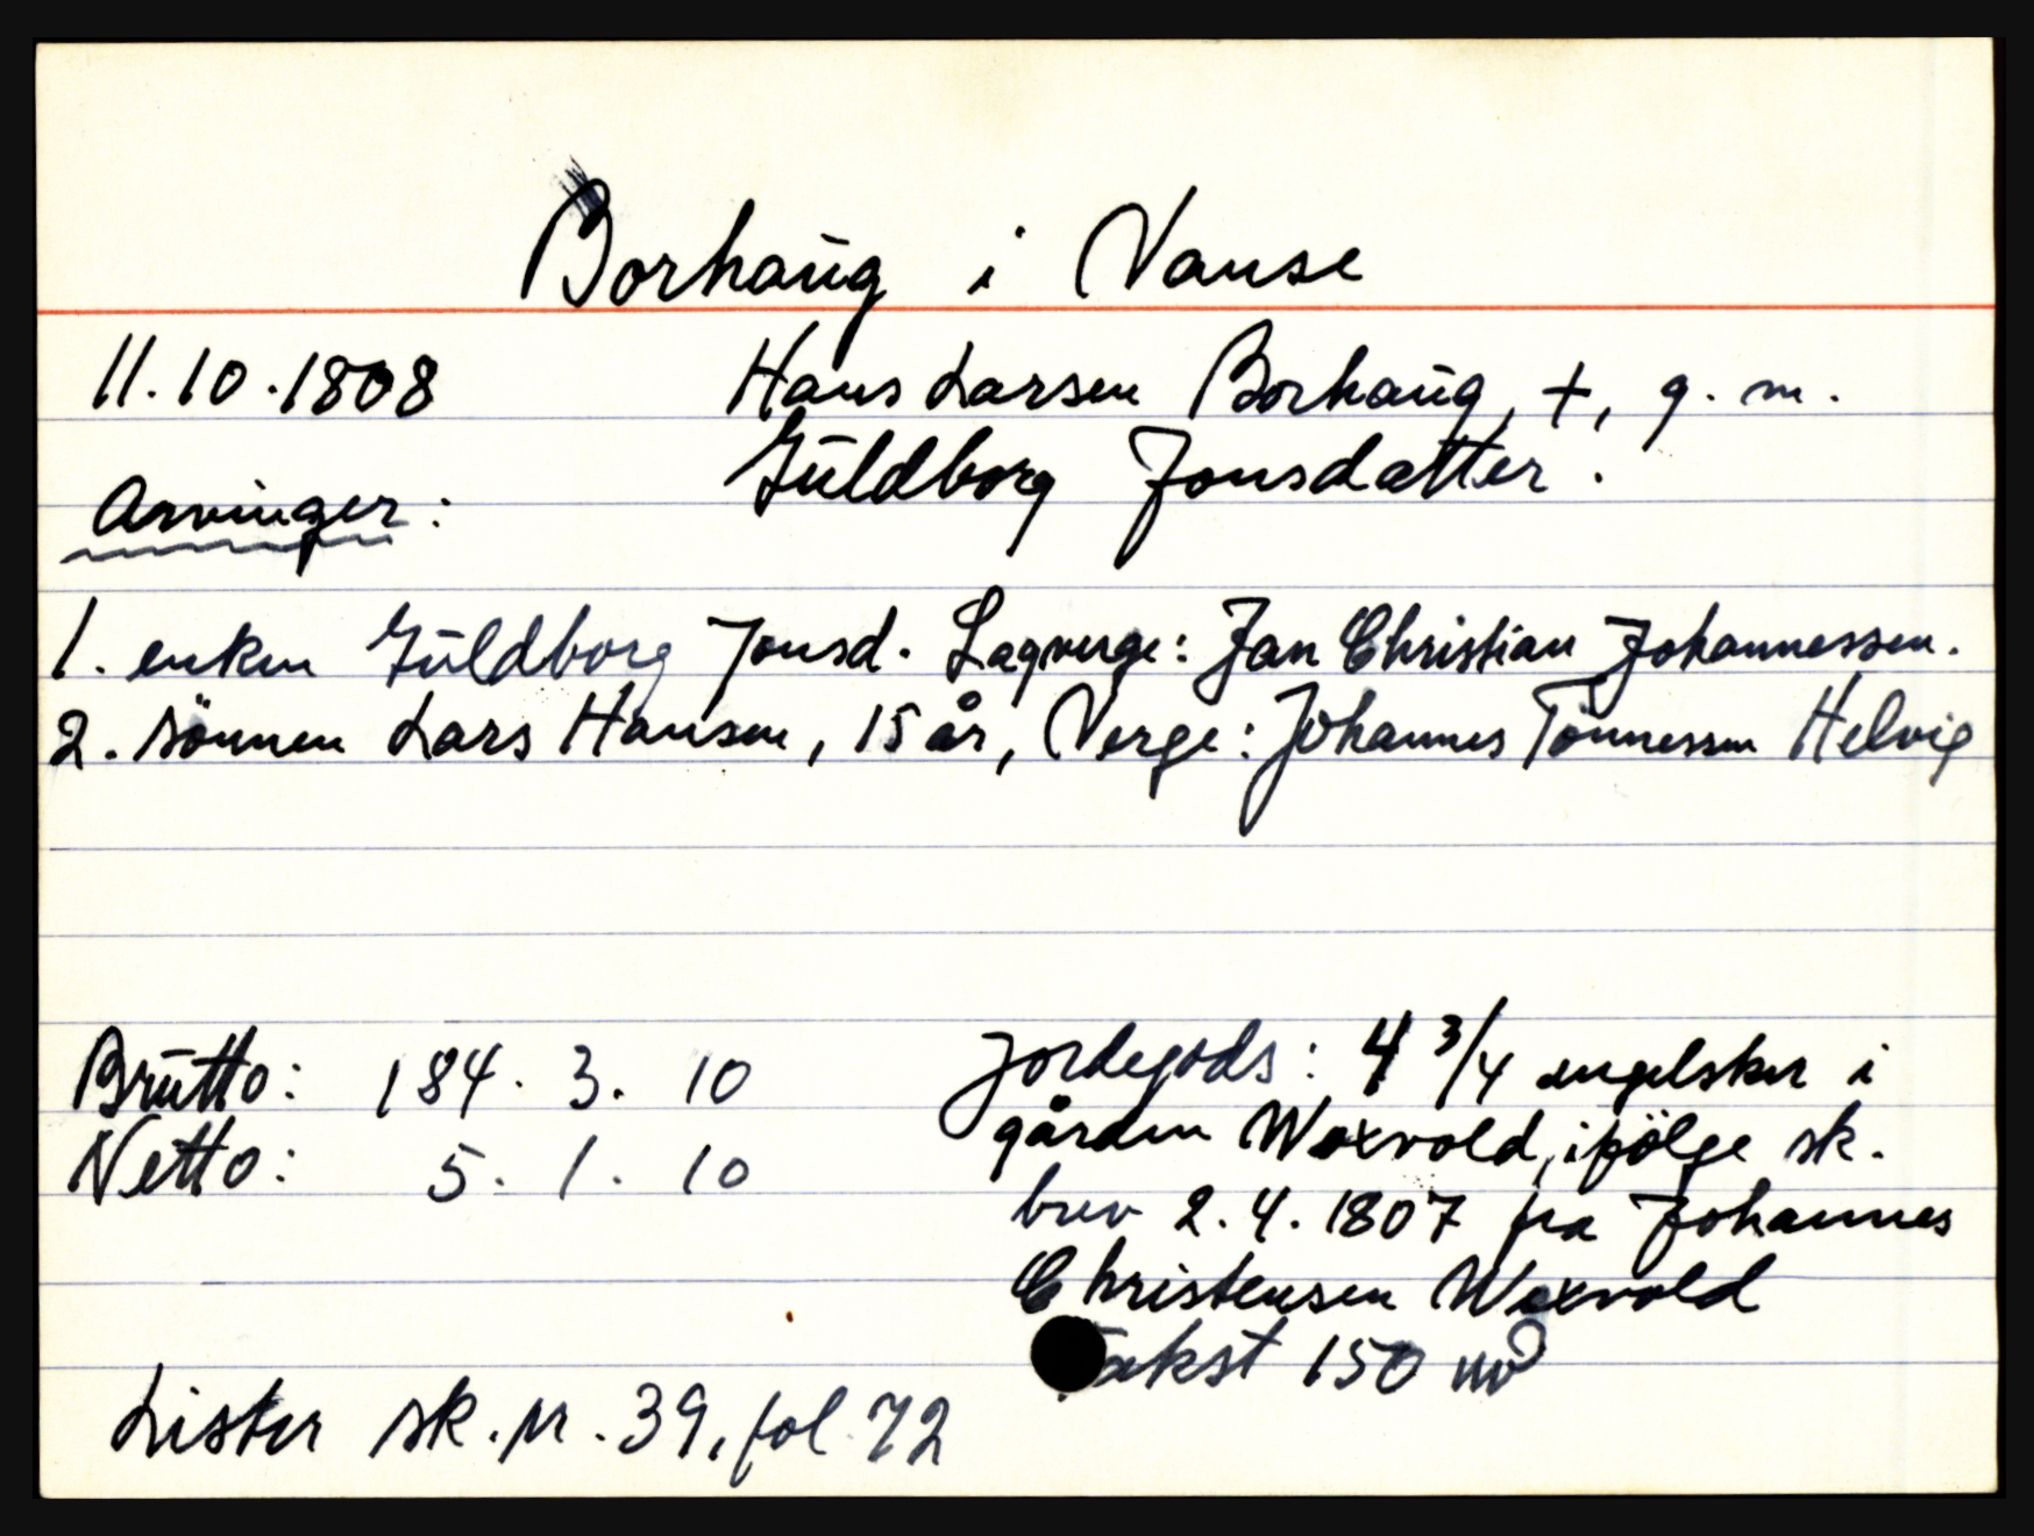 Borhaug i Vanse
11.10.1808 Hans Larsen Borhaug, +, g. m.
Guldborg Jonsdatter.
Arvinger:
1. enken Guldborg Jonsd. Lagverge: Jan Christian Johannessen.
2. sönnen Lars Hansen, 15 år, Verge: Johannes Tönnessen Helvig
Brutto: 184. 3. 10
Netto: 5. 1. 10
Jordegods: 4 3/4 engelsker i
gården Woxvold, ifölge sk.
brev 2.4.1807 fra Johannes
Christensen Woxvold
Takst 150
Lister sk. pr. 39, fol 72